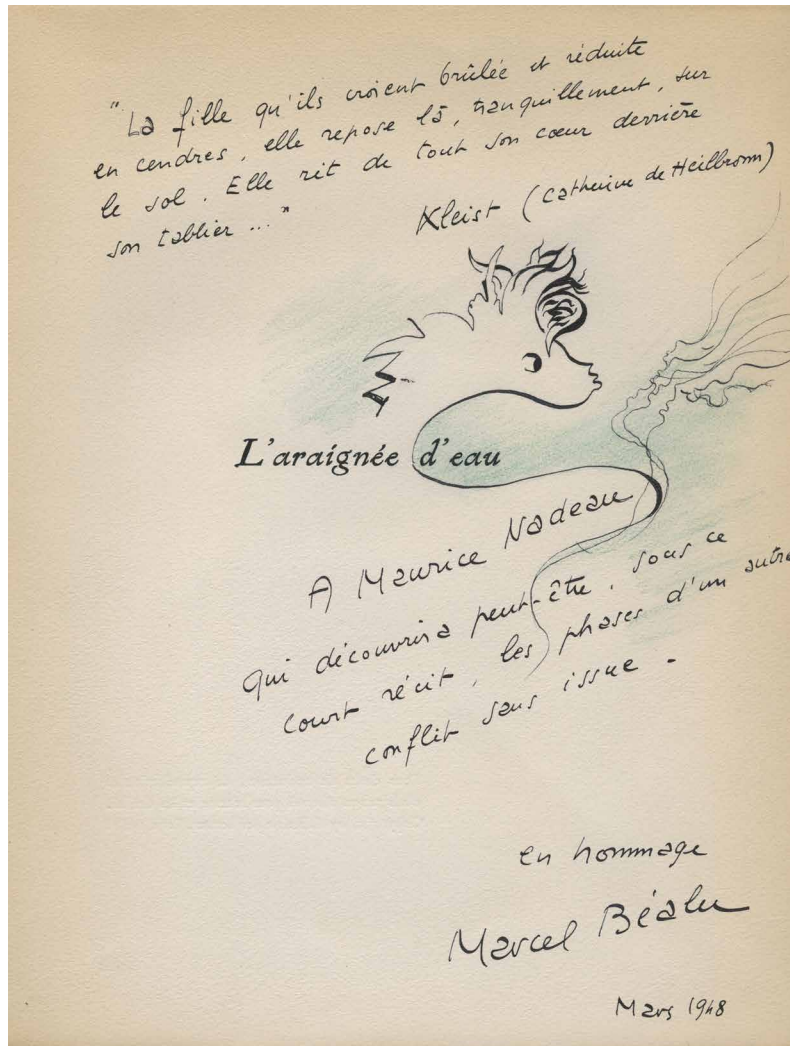 "La fille qu'ils croient brûlée et réduite
en cendres, elle repose là, tranquillement, sur
le sol. Elle rit de tout son cœur derrière
son tablier..."
Kleist (Catherine de Heilbronn)
L'araignée d'eau
A Maurice Nadeau
qui découvrira peut-être, sous ce
court récit, les phases d'un autre
conflit sans issue -
en hommage
Marcel Béalu
Mars 1948